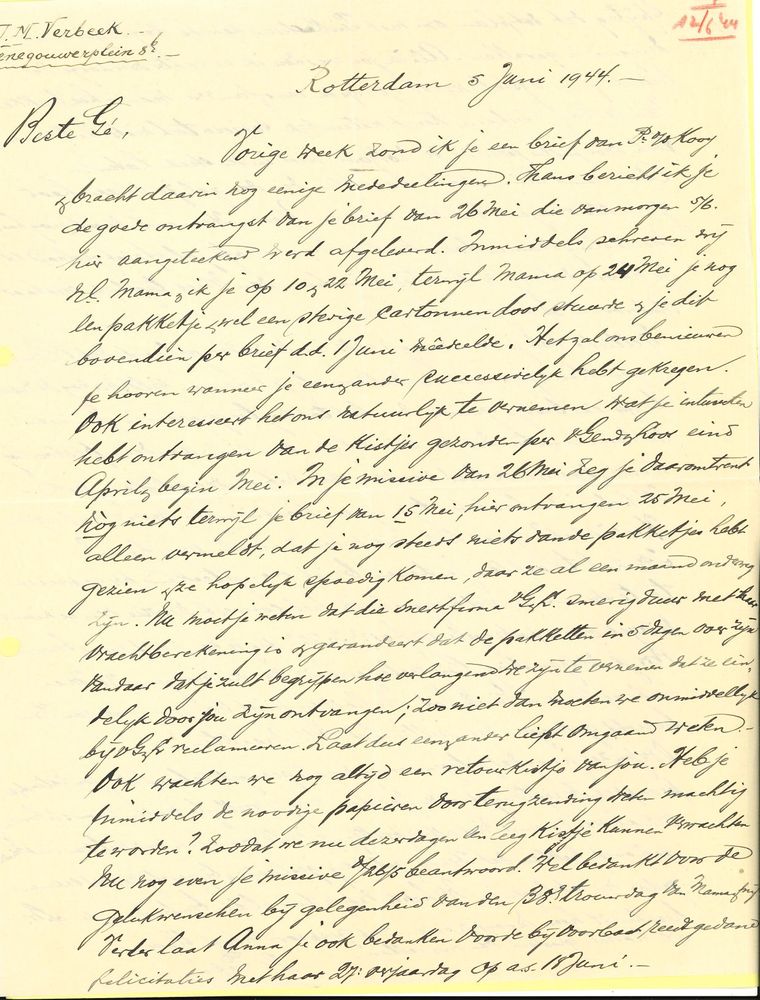 J.N. Verbeek.—
enegouwerplein 8b.—
12/6 '44
Rotterdam 5 Juni 1944.—
Beste Gé,
Vorige week zond ik je een brief van P. v/d Kooy
& bracht daarin nog eenige mededeelingen. Thans bericht ik je
de goede ontvangst van je brief van 26 Mei die vanmorgen 5/6.
hier aangeteekend werd afgeleverd. Inmiddels schreven wij
nl. Mama & ik je op 10 & 22 Mei, terwijl Mama op 24 Mei je nog
een pakketje & wel een stevige cartonnen doos stuurde & je dit
bovendien per brief d.d. 1 Juni meedeelde. Het zal ons benieuwen
te hooren wanneer je een & ander successivelijk hebt gekregen.
Ook interesseert het ons natuurlijk te vernemen wat je intusschen
hebt ontvangen van de kistjes gezonden per v Gend & Loos eind
April & begin Mei. In je missive van 26 Mei zeg je daaromtrent
nog niets terwijl je brief van 15 Mei, hier ontvangen 25 Mei,
alleen vermeldt, dat je nog steeds niets van de pakketjes hebt
gezien & ze hopelijk spoedig komen, daar ze al een maand onderweg
zijn. Nu moet je weten dat die snertfirma v G & L. smerig duur met haar
vrachtberekening is & garandeert dat de pakketten in 5 dagen over zijn
vandaar dat je zult begrijpen hoe verlangend we zijn te vernemen dat ze ein-
delijk door jou zijn ontvangen!; zoo niet dan moeten we onmiddellijk
bij v G & L reclameeren. Laat dus een & ander liefst omgaand weten.—
Ook wachten we nog altijd een retourkistje van jou. Heb je
inmiddels de noodige papieren voor terugzending weten machtig
te worden? Zoodat we nu dezer dagen een leeg kistje kunnen verwachten
Nu nog even je missive 26/5 beantwoord. Wel bedankt voor de
gelukwenschen bij gelegenheid van den 38n trouwdag van Mama & mij
Verder laat Anna je ook bedanken voor de bij voorbaat reeds gedane
felicitaties met haar 27n verjaardag op a.s. 18 Juni.—